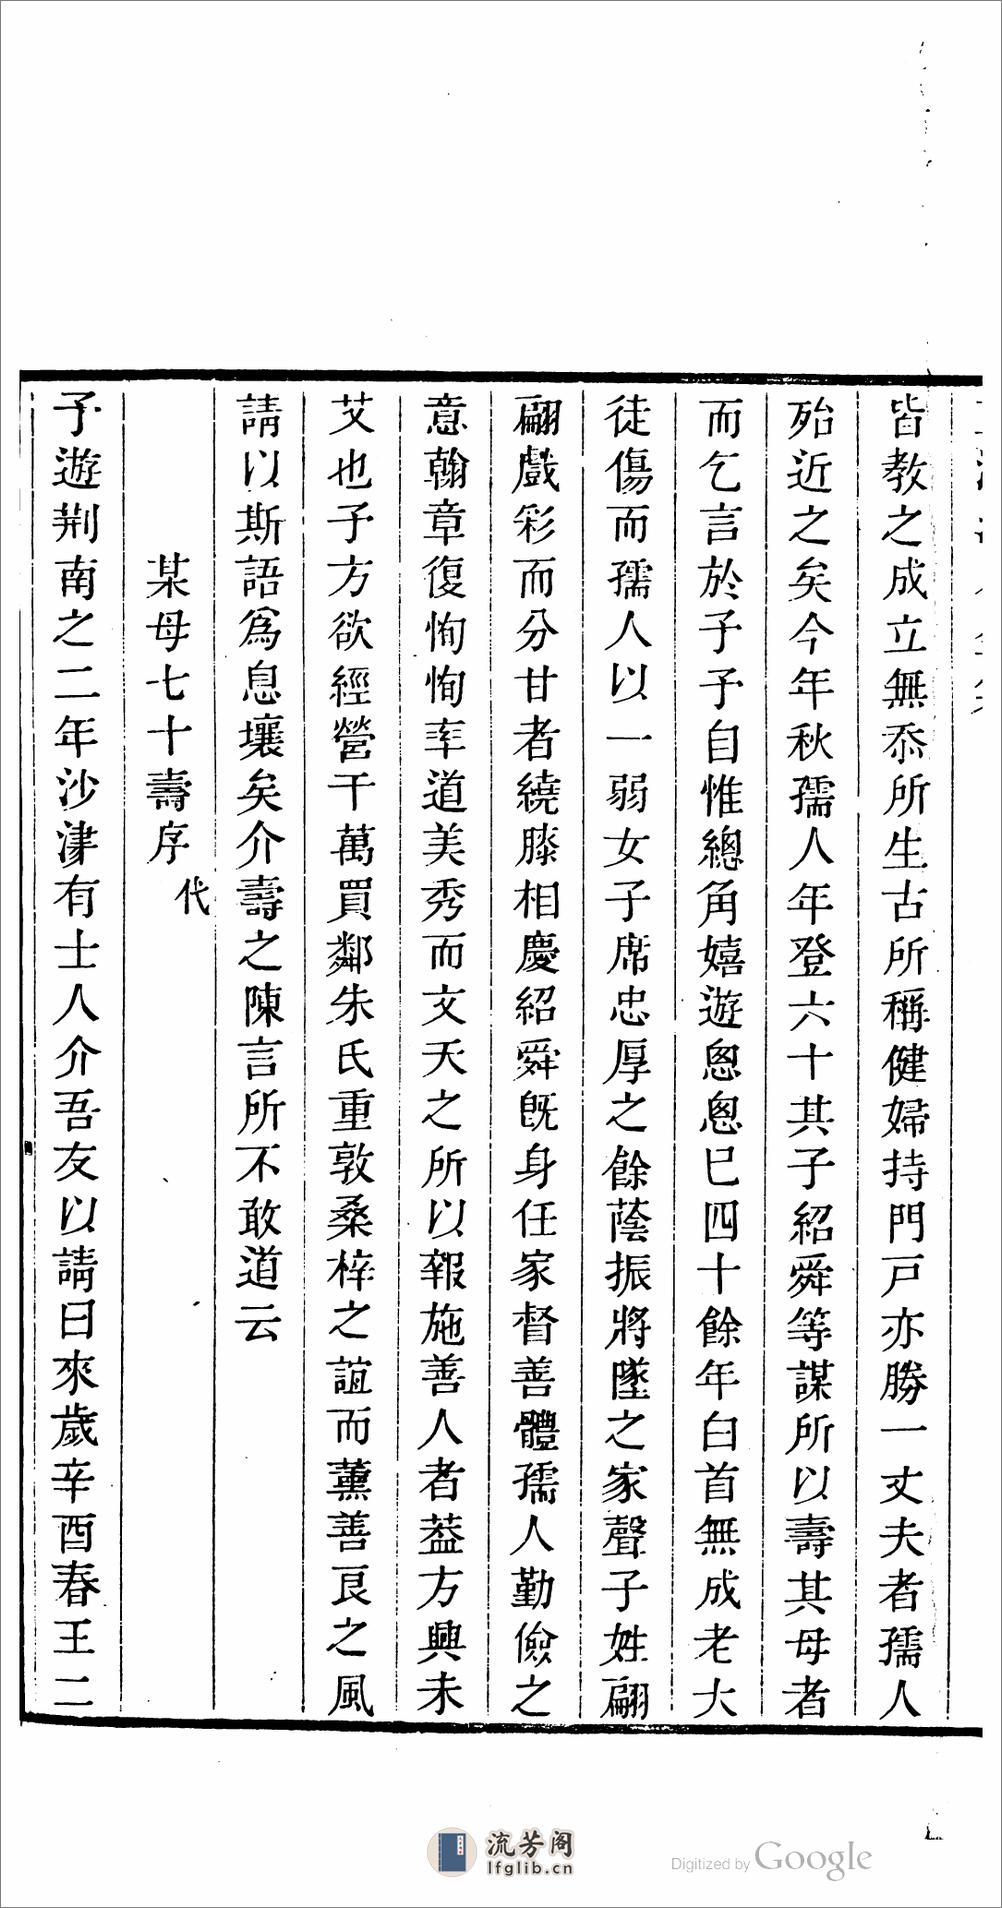 皆教之成立無忝所生古所稱健婦持門戸亦勝一丈夫者孺人
殆近之矣今年秋孺人年登六十其子紹舜等謀所以壽其母者
而乞言於予予自惟總角嬉遊悤悤已四十餘年白首無成老大
徒傷而孺人以一弱女子席忠厚之餘蔭振將墜之家聲子姓翩
翩戲彩而分甘者繞膝相慶紹舜旣身任家督善體孺人勤儉之
意翰章復恂恂率道美秀而文天之所以報施善人者葢方興未
艾也予方欲經營千萬買鄰朱氏重敦桑梓之誼而薰善良之風
請以斯語爲息壤矣介壽之陳言所不敢道云
某母七十壽序 代
予遊荆南之二年沙津有士人介吾友以請曰來歲辛酉春王二
流芳阁
lfglib.cn
Digitized by Google